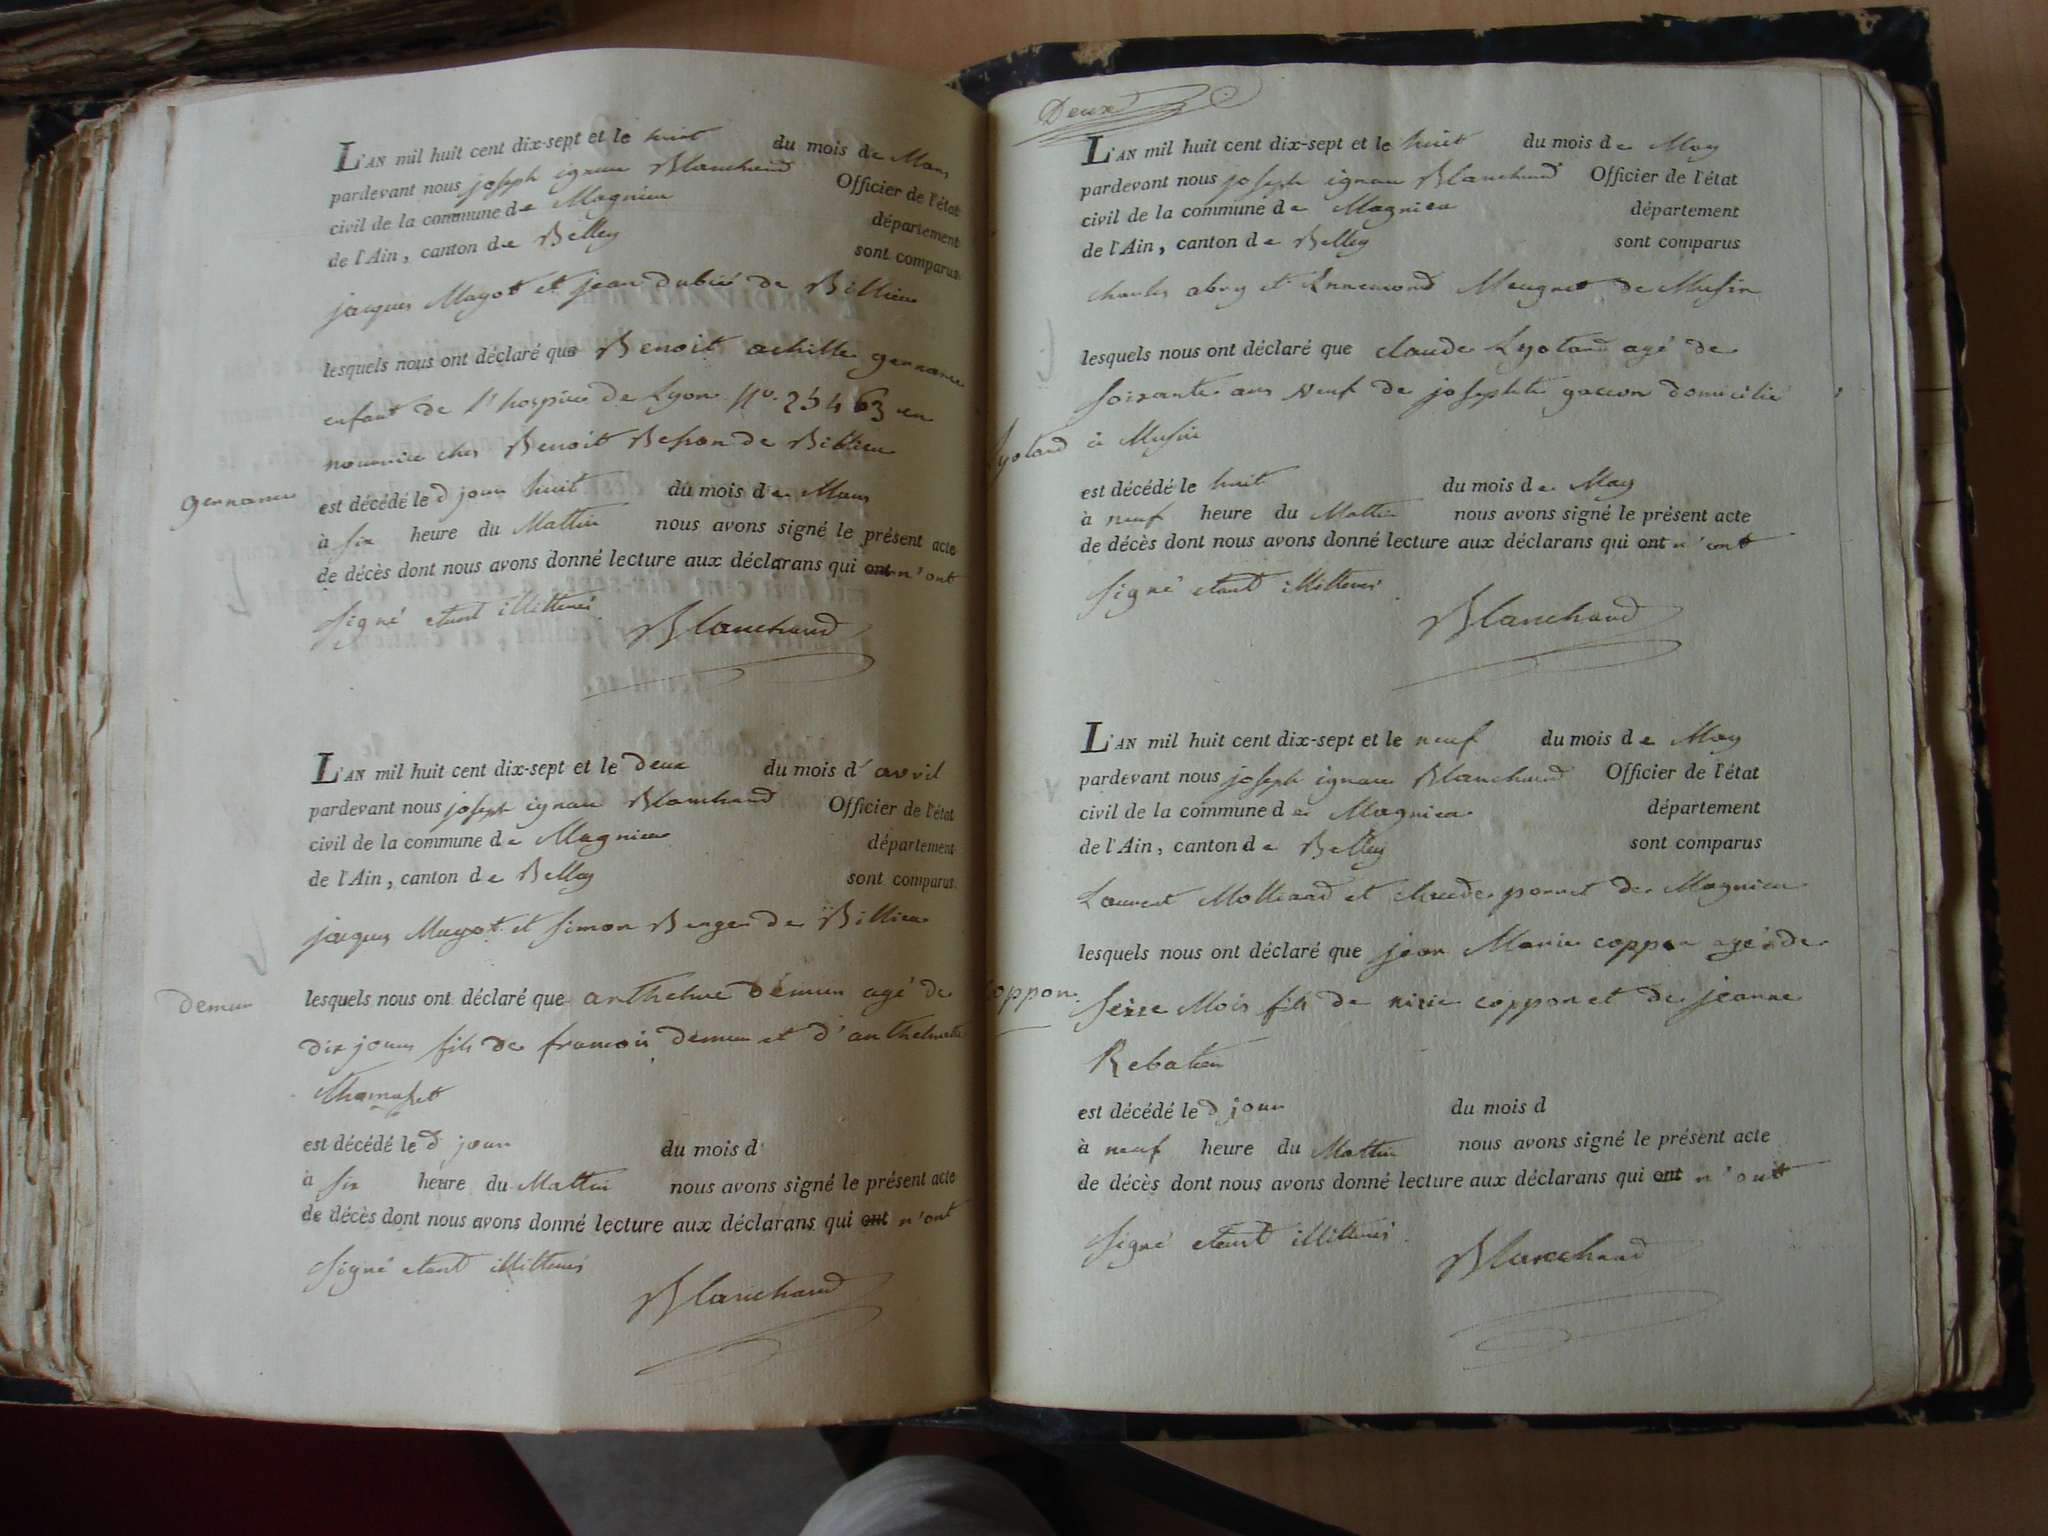 L'AN mil huit cent dix-sept et le huit du mois de Mars
pardevant nous joseph ignace Blanchard Officier de l'état
civil de la commune de Magnieu département
de l'Ain, canton de Belley sont comparus
jacques Mayot et jean dubié de Billieu
lesquels nous ont déclaré que Benoit achille
enfant de l'hospice de Lyon N°. 25463 en
nourrice chez Benoit Besson de Billieu
est décédé le d jour huit du mois de Mars
à six heure du Mattin nous avons signé le présent acte
de décès dont nous avons donné lecture aux déclarans qui ont n'ont
signé etant illitterés
Blanchard
L'AN mil huit cent dix-sept et le deux du mois d'avril
pardevant nous joseph ignace Blanchard Officier de l'état
civil de la commune de Magnieu département
de l'Ain, canton de Belley sont comparus
jacques Mayot et simon Berger de Billieu
demeur
lesquels nous ont déclaré que anthelme demeur agé de
dix jours fils de francois demeur et d'anthelmette
est décédé le d jour du mois d
à six heure du Mattin nous avons signé le présent acte
de décès dont nous avons donné lecture aux déclarans qui ont n'ont
signé etant illitterés
Blanchard
Deux
L'AN mil huit cent dix-sept et le huit du mois de May
pardevant nous joseph ignace Blanchard Officier de l'état
civil de la commune de Magnieu département
de l'Ain, canton de Belley sont comparus
charles abry et Ennemond Meugnet de Musin
lesquels nous ont déclaré que claude Lyotard agé de
soixante ans veuf de josephte gaccon domicilié
Lyotard
à Musin
est décédé le huit du mois de May
à neuf heure du Mattin nous avons signé le présent acte
de décès dont nous avons donné lecture aux déclarans qui ont n'ont
signé etant illitterés
Blanchard
L'AN mil huit cent dix-sept et le neuf du mois de May
pardevant nous joseph ignace Blanchard Officier de l'état
civil de la commune de Magnieu département
de l'Ain, canton de Belley sont comparus
Laurent Molliard et claude ponnet de Magnieu
lesquels nous ont déclaré que jean Marie coppon agé de
coppon
seize Mois fils de coppon et de jeanne
Rebatieu
est décédé le d jour du mois d
à neuf heure du Mattin nous avons signé le présent acte
de décès dont nous avons donné lecture aux déclarans qui ont n'ont
signé etant illitterés
Blanchard